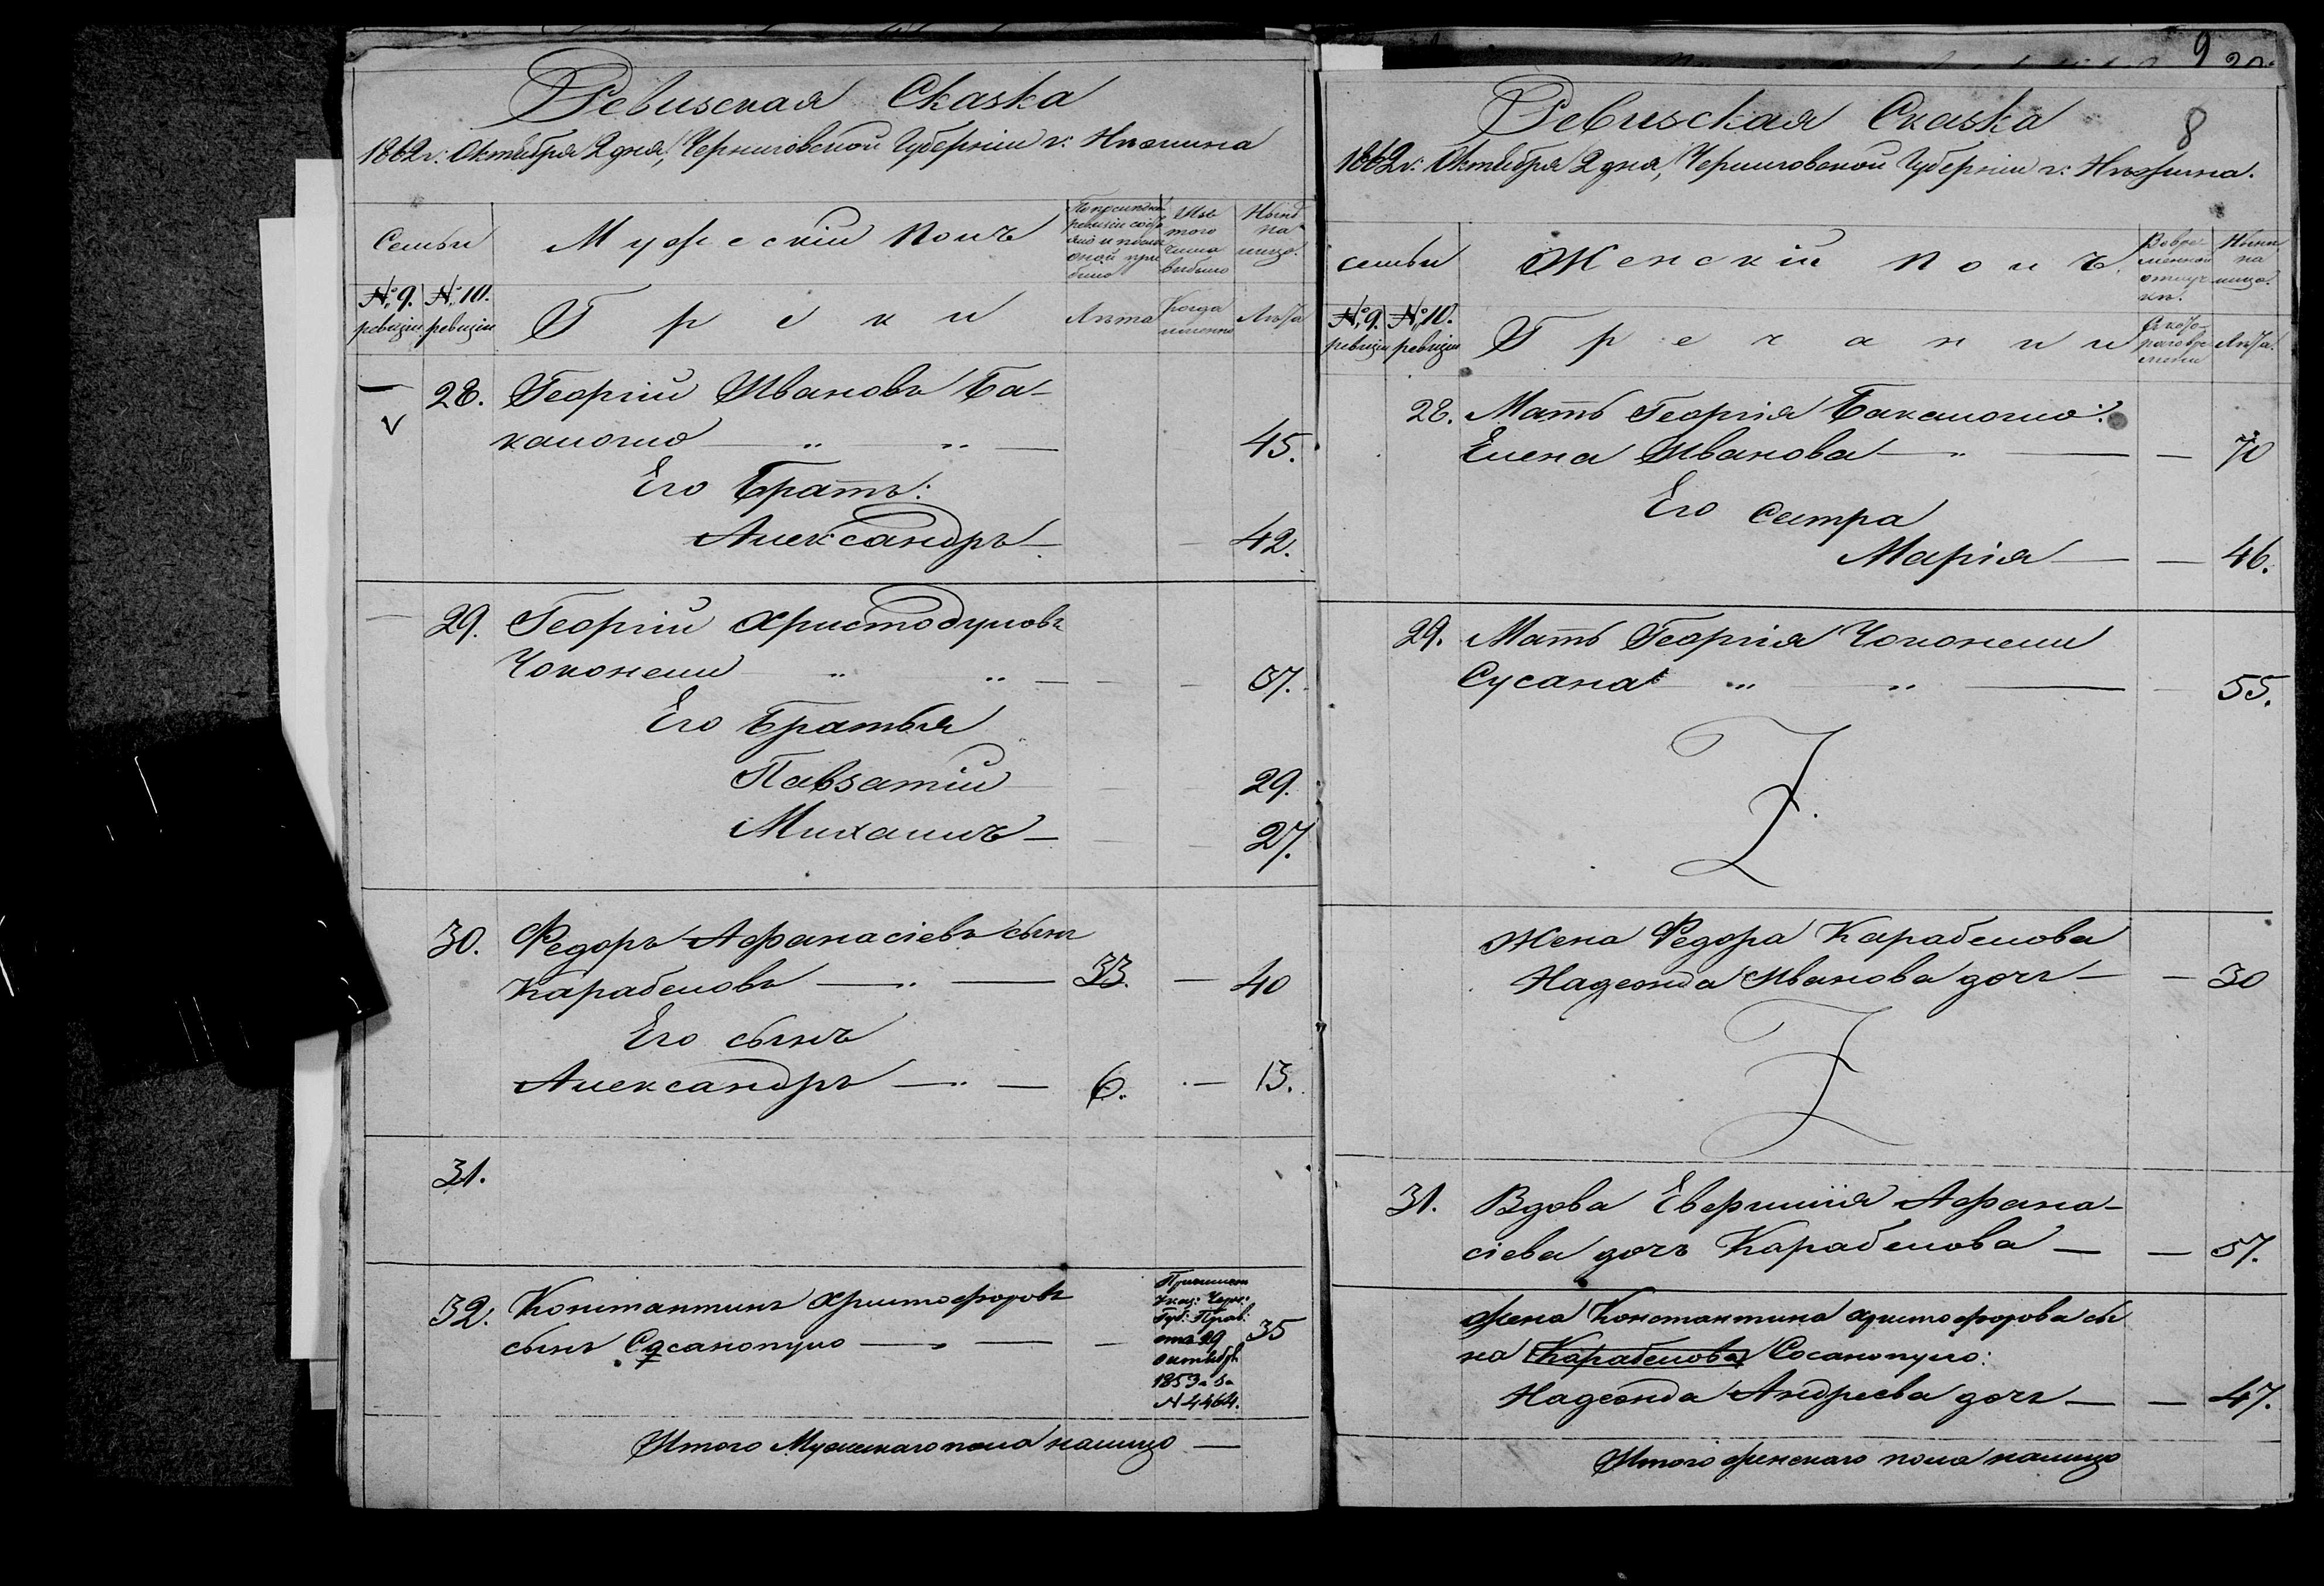 Ревизская Сказка
1862 г: Октября 2 дня, Черниговской Губерніи г: Нѣжина
Семьи
Мужескій полъ
Изъ того числа выбыло
Нынѣ на лицо.
№ 9. ревизіи
№ 10. ревизіи
Греки
Лѣта
Когда именно
Лѣта
28. Георгій Ивановъ Ба-
калогло — „ „ — 45.
Его Братъ:
Александръ — 42.
29. Георгій Христодуловъ
Чоконели „ „ — 37.
Его Братья
Павзатій 29.
Михаилъ — 27.
30. Федоръ Афанасіевъ сынъ
Карабеловъ — „ — 33. — 40
Его сынъ
Александръ — „ — 6. — 13.
31.
32. Константинъ Христофоровъ
сынъ Сосанопуло — 35
Причислен
указ: Черн:
Губ: Прав:
отъ 29
октября
1853 г. за
№ 4464.
Итого Мужескаго пола налицо —
9
8
Ревизская Сказка
1862 г: Октября 2 дня, Черниговской Губерніи г: Нѣжина.
семьи
Женскій полъ.
Во временной отлучкѣ.
Нынѣ на лицо.
№ 9. ревизіи
№ 10. ревизіи
Гречанки
Съ котораго времени
Лѣта.
28. Мать Георгія Бакалогло:
Елена Иванова — „ — — 70
Его сестра
Марія — — 46.
29. Мать Георгія Чоконели
Сусана „ „ — 55.
Жена Федора Карабелова
Надежда Иванова дочь — — 30
31. Вдова Афана-
сіева дочь Карабелова — — 57.
Жена Константина Христофорова сы
на Карабелова Сосанопуло:
Надежда Андреева дочь — — 47.
Итого женскаго пола налицо